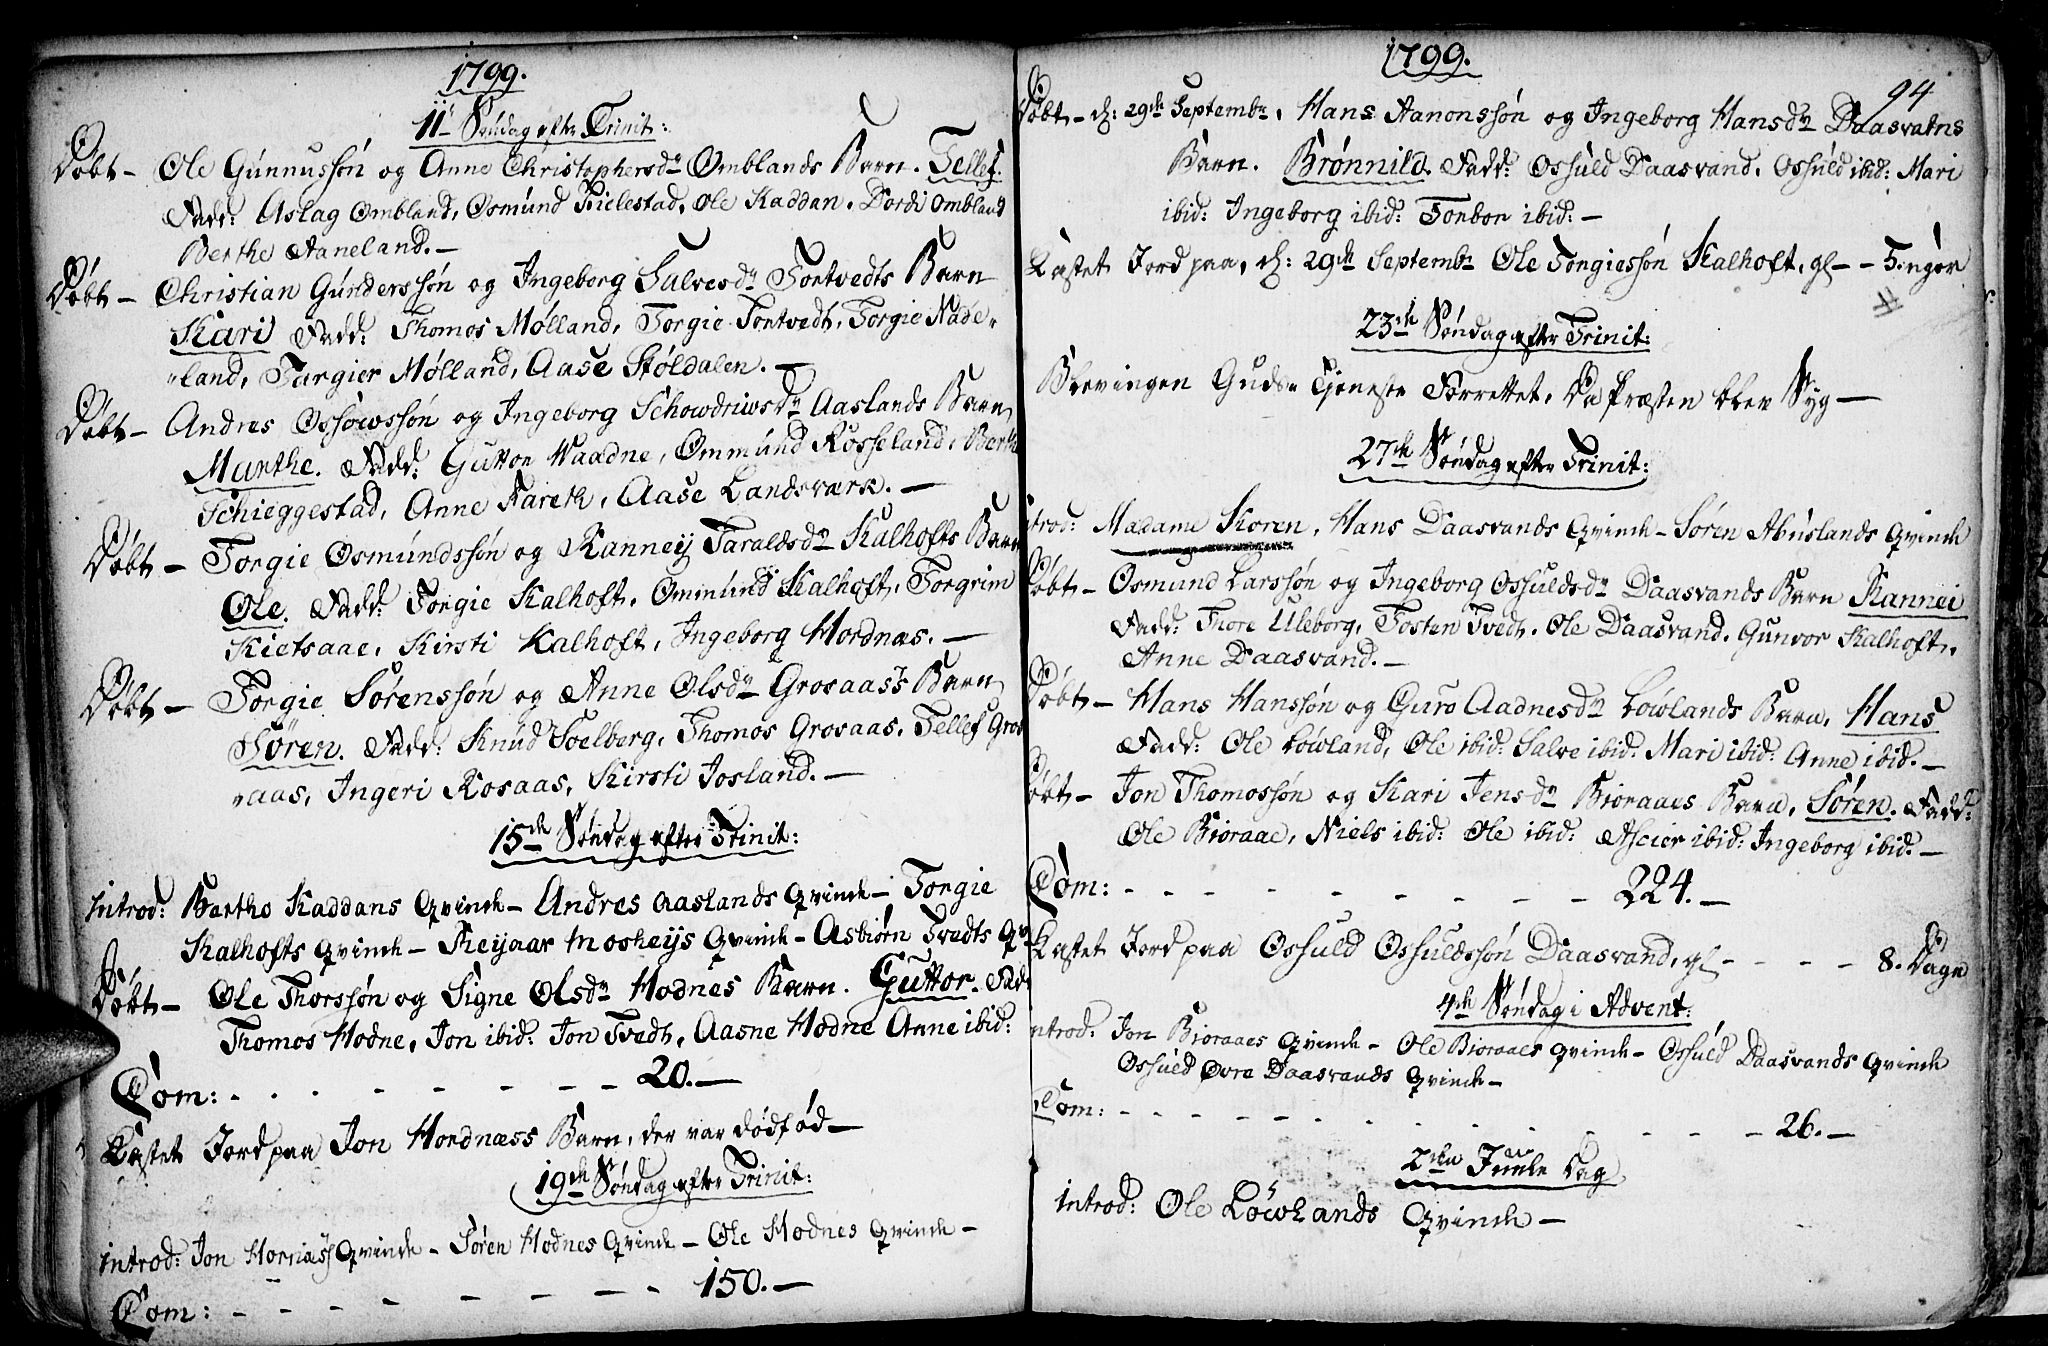 1799.
11te Søndag efter Trinit:
Døbt – Ole Gunnussøn og Anne Christophersdr Omblands Barn. Tellef.
Fadd: Aslag Ombland, Osmund Fielestad, Ole Kaddan, Dordi Ombland
Berthe Aaneland. –
Døbt – Christian Gunderssøn og Ingeborg Salvesdr Tortvedts Barn
Kari Fadd: Thomos Mølland, Torgie Tortvedt, Torgie Aade-
-land, Targier Mølland, Aase Støldalen. –
Døbt – Andres Ossowssøn og Ingeborg Schowdriwsdr Aaslands Barn
Marthe. Fadd: Guttor Waadne, Ommund Rosseland, Berthe
Schieggestad, Anne Aareth, Aase Landsværk. –
Døbt – Torgie Osmundssøn og Ranney Taraldsdr Kalhofts Barn
Ole. Fadd: Torgie Kalhoft, Ommund Kalhoft, Torgrim
Kietsaae, Kirsti Kalhoft, Ingeborg Hordnæs. –
Døbt – Torgie Sørenssøn og Anne Olsdr Grosaas's Barn
Søren. Fadd: Knud Toelberg, Thomos Grosaas, Tellef Gros
-aas, Ingeri Rosaas, Kirsti Josland. –
15de Søndag efter Trinit:
Introd: Bertho Kaddans Qvinde – Andres Aaslands Qvinde – Torgie
Kalhofts Qvinde – Reijaar Mosheijs Qvinde – Asbiørn Tvedts Qv
Døbt – Ole Thorssøn og Signe Olsdr Hodnes Barn. Guttor. Fadd
Thomos Hodne, Jon ibid: Jon Tvedt, Aasne Hodne Anne ibid:
Com: - - - - - - - 20. –
Kastet Jord paa Jon Hordnæss Barn, der var dødfød –
19de Søndag efter Trinit:
Introd: Jon Hornæss Qvinde – Søren Hodnes Qvinde – Ole Hodnes Qvinde –
Com: - - - - - - - 150. –
1799.
94
Døbt – d: 29de Septembr. Hans Aanonssøn og Ingeborg Hansdr Daasvatns
Barn. Brønnild. Fadd: Ossuld Daasvand, Ossuld ibid: Mari
ibid: Ingeborg ibid: Tonbor ibid: –
Kastet Jord paa, d: 29de Septembr Ole Torgiessøn Kalhoft, gl – 5 uger
#
23de Søndag efter Trinit:
Blev ingen Guds Tjeneste Forrettet, Da Præsten blev Syg –
27de Søndag efter Trinit:
trod: Madame Koren, Hans Daasvands Qvinde – Søren Abuslands Qvinde
Døbt – Osmund Larssøn og Ingeborg Ossuldsdr Daasvands Barn Rannei
Fadd: Tore Uleborg, Tosten Tvedt, Ole Daasvand, Gunvor Kalhoft,
Anne Daasvand. –
Døbt – Hans Hanssøn og Guro Aadnesdr Løwlands Barn, Hans
Fadd: Ole Løwland, Ole ibid: Salve ibid: Mari ibid: Anne ibid. –
Døbt – Jon Thomossøn og Kari Jensdr Bioraaes Barn, Søren. Fadd:
Ole Bioraae, Niels ibid: Ole ibid: Ascier ibid: Ingeborg ibid: –
Com: - - - - - - - 224. –
Kastet Jord paa Ossuld Ossuldssøn Daasvand, gl - - - - 8. Dage
4de Søndag i Advent:
ntrod: Jon Bioraaes Qvinde – Ole Bioraaes Qvinde – Ossuld Daasvands Qvinde
Ossuld Øvre Daasvands Qvinde –
Com: - - - - - - - - - - - 26. –
2den Juule Dag
Introd: Ole Løwlands Qvinde –